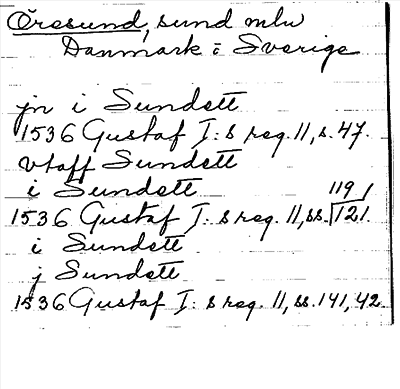 Öresund, sund mlu
Danmark o Sverige
jn i Sundett
1536 Gustaf I:s reg. 11, s. 47.
vtaff Sundett
i Sundett
1536 Gustaf I:s reg. 11, ss. 119, 121.
i Sundett
j Sundett
1536 Gustaf I:s reg. 11, ss. 141, 42